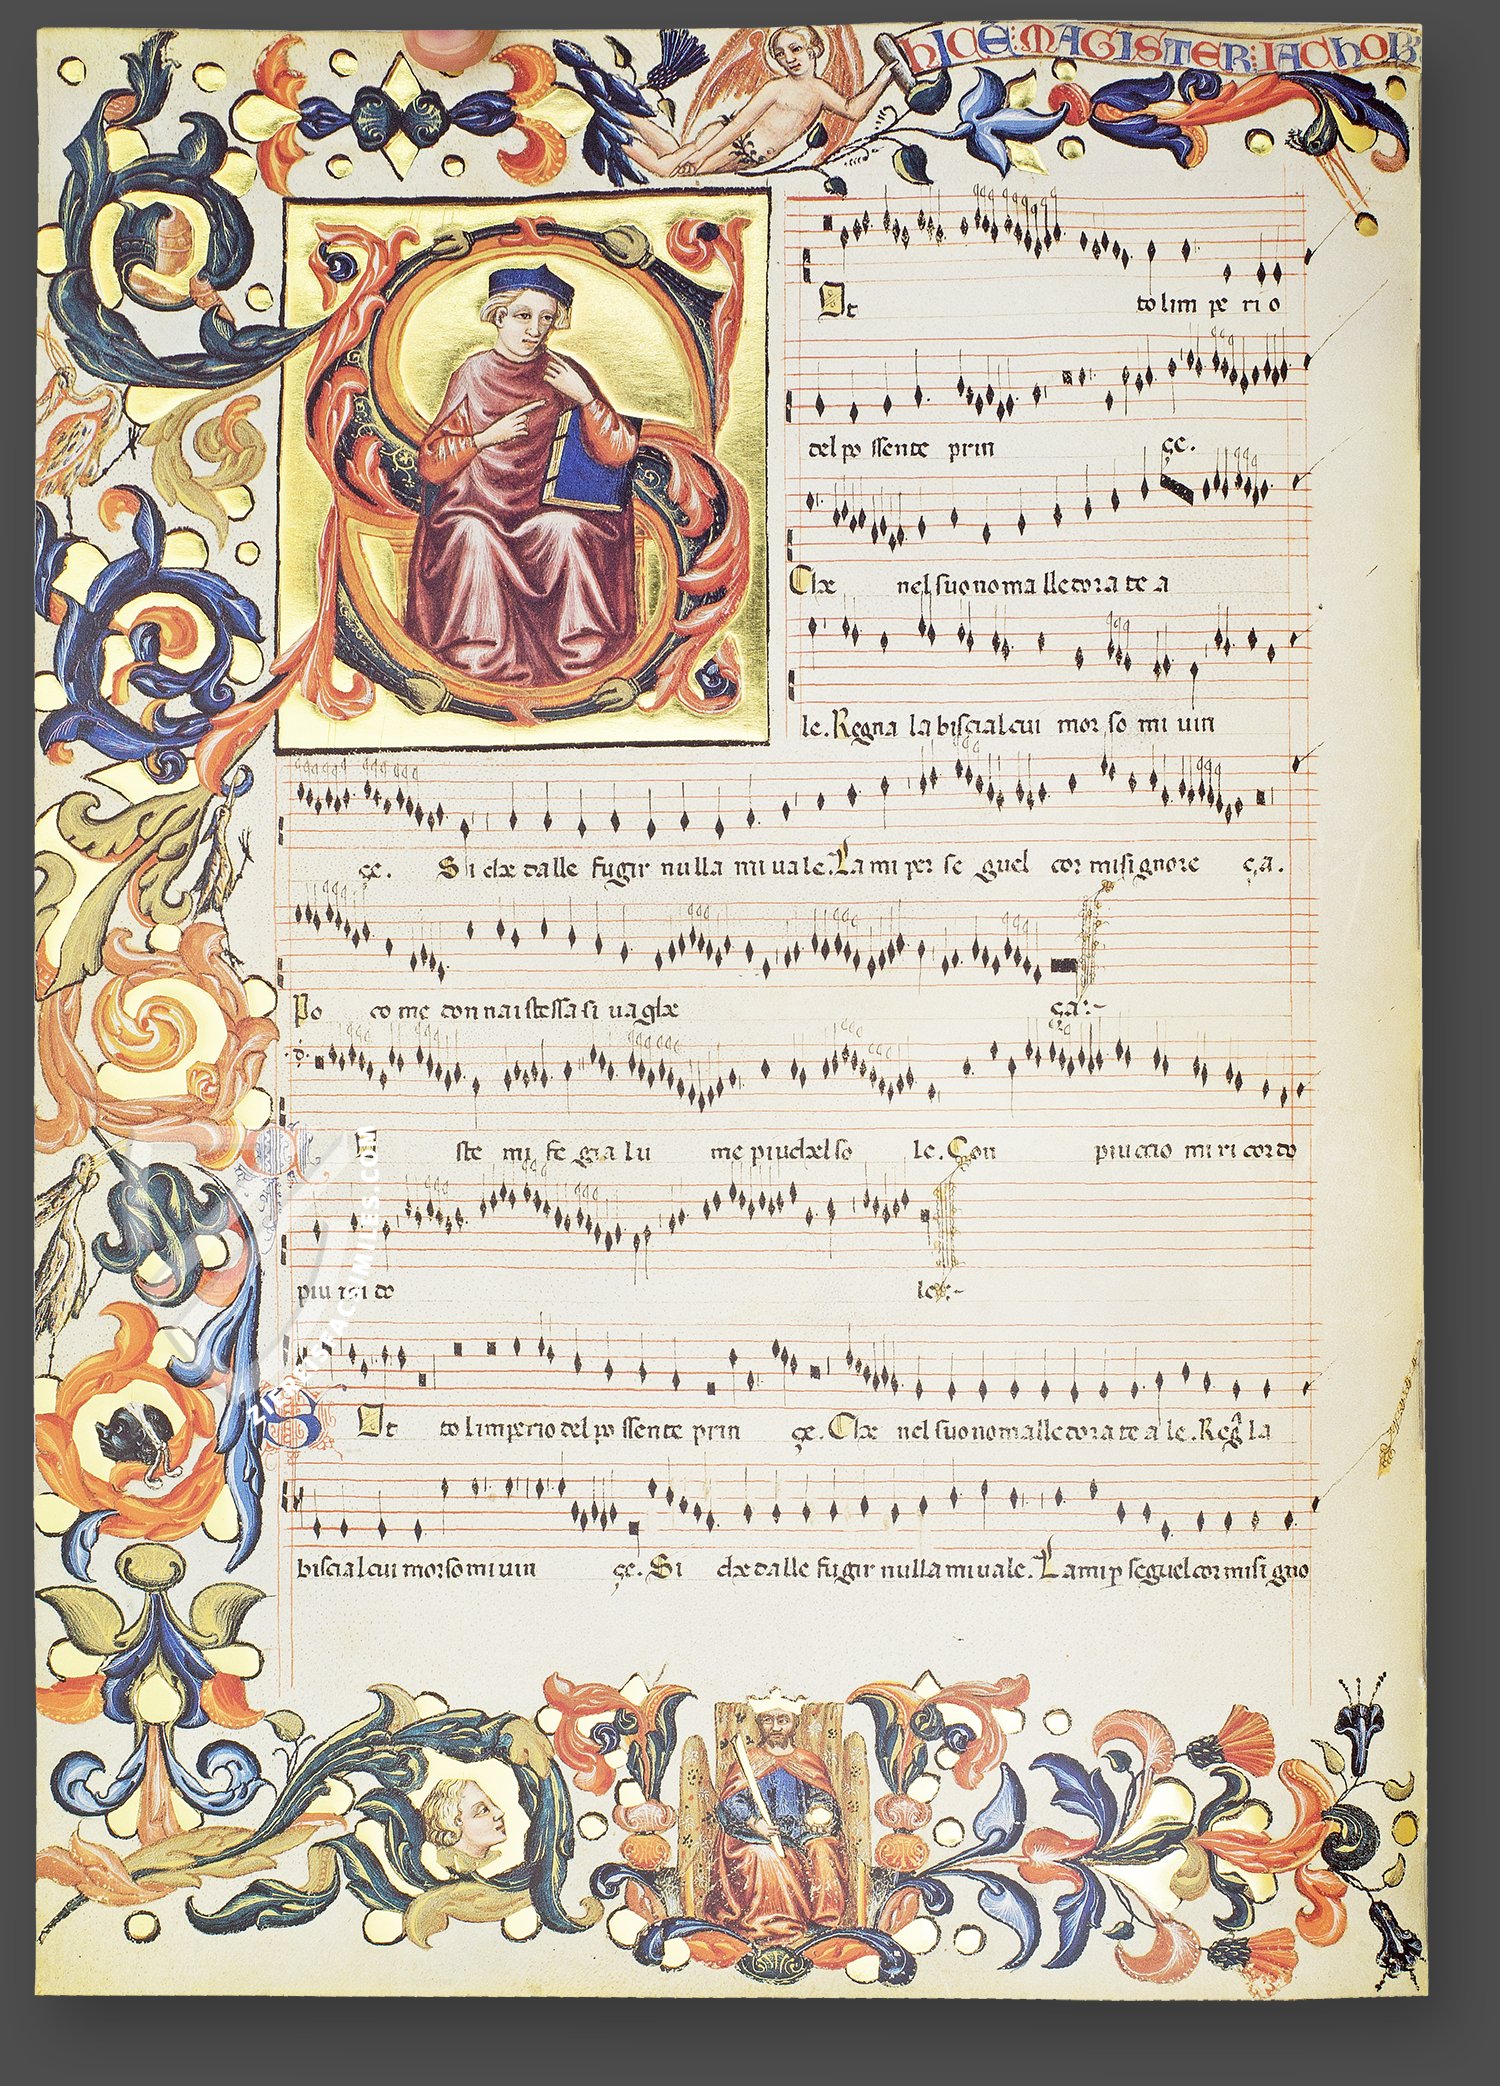 HICE:MAGISTER:IACHOB
Ot to lim pe ri o
del po ssente prin çe.
Che nel suo no ma lle dora te a
le. Regna la biscia l cui mor so mi vin
çe. Si che dalle fugir nulla mi va le. La mi per se guel cor misi gnore ça.
Po co me don na i stessa si vaghe ça:~
E ste mi fe gia lu me piu chel so le. Con piu ccio mi ri cordo
piu mi do le:~
S Ot to limperio del po ssente prin çe. Che nel suo no malle dora te a le. Reg̃ la
biscia l cui morso mi vin çe. Si che dalle fugir nulla mi vale. La mi p seguel cor misi gno
ZIEREISFACSIMILES.COM